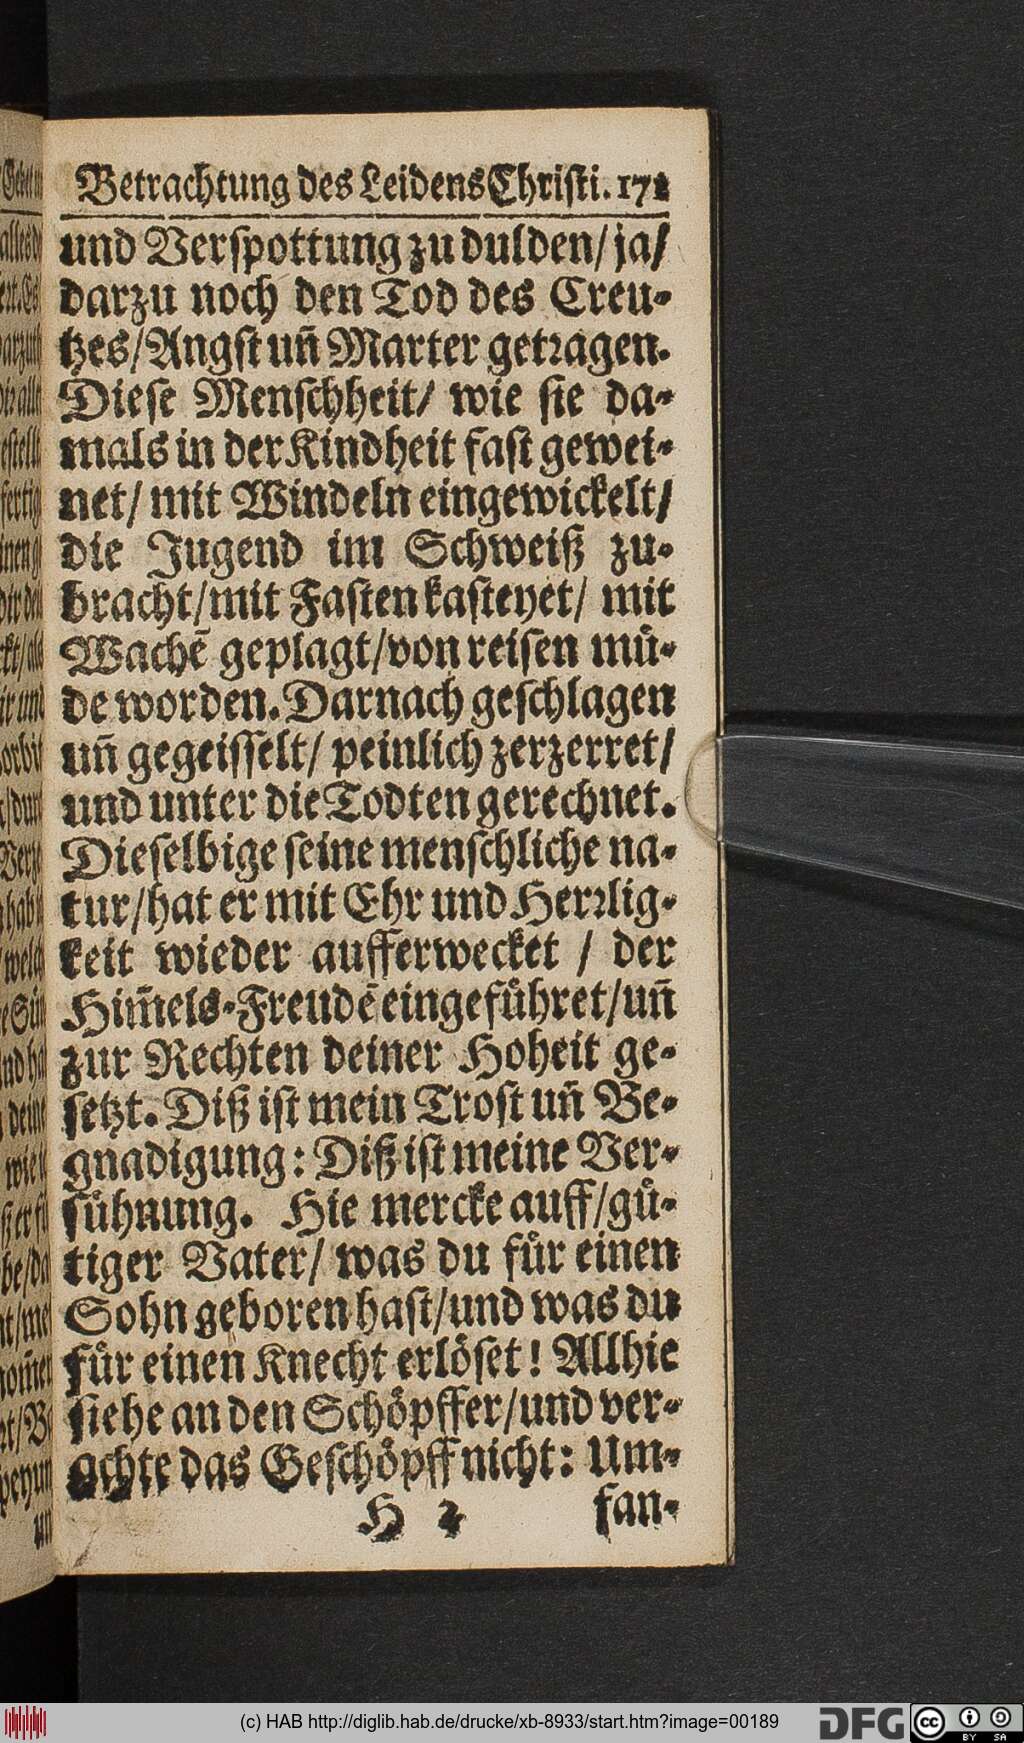 Betrachtung des Leidens Christi. 171
und Verspottung zu dulden/ ja/
darzu noch den Tod des Creu-
tzes/ Angst uñ Marter getragen.
Diese Menschheit/ wie sie da-
mals in der Kindheit fast gewei-
net/ mit Windeln eingewickelt/
die Jugend im Schweiß zu-
bracht/ mit Fasten kasteyet/ mit
Wachẽ geplagt/ von reisen mü-
de worden. Darnach geschlagen
uñ gegeisselt/ peinlich zerzerret/
und unter die Todten gerechnet.
Dieselbige seine menschliche na-
tur/ hat er mit Ehr und Herrlig-
keit wieder aufferwecket / der
Him̃els-Freudẽ eingeführet/ uñ
zur Rechten deiner Hoheit ge-
setzt. Diß ist mein Trost uñ Be-
gnadigung: Diß ist meine Ver-
sühnung. Hie mercke auff/ gü-
tiger Vater/ was du für einen
Sohn geboren hast/ und was du
für einen Knecht erlöset! Allhie
siehe an den Schöpffer/ und ver-
achte das Geschöpff nicht: Um-
H 2 fan-
(c) HAB http://diglib.hab.de/drucke/xb-8933/start.htm?image=00189
DFG
cc BY SA